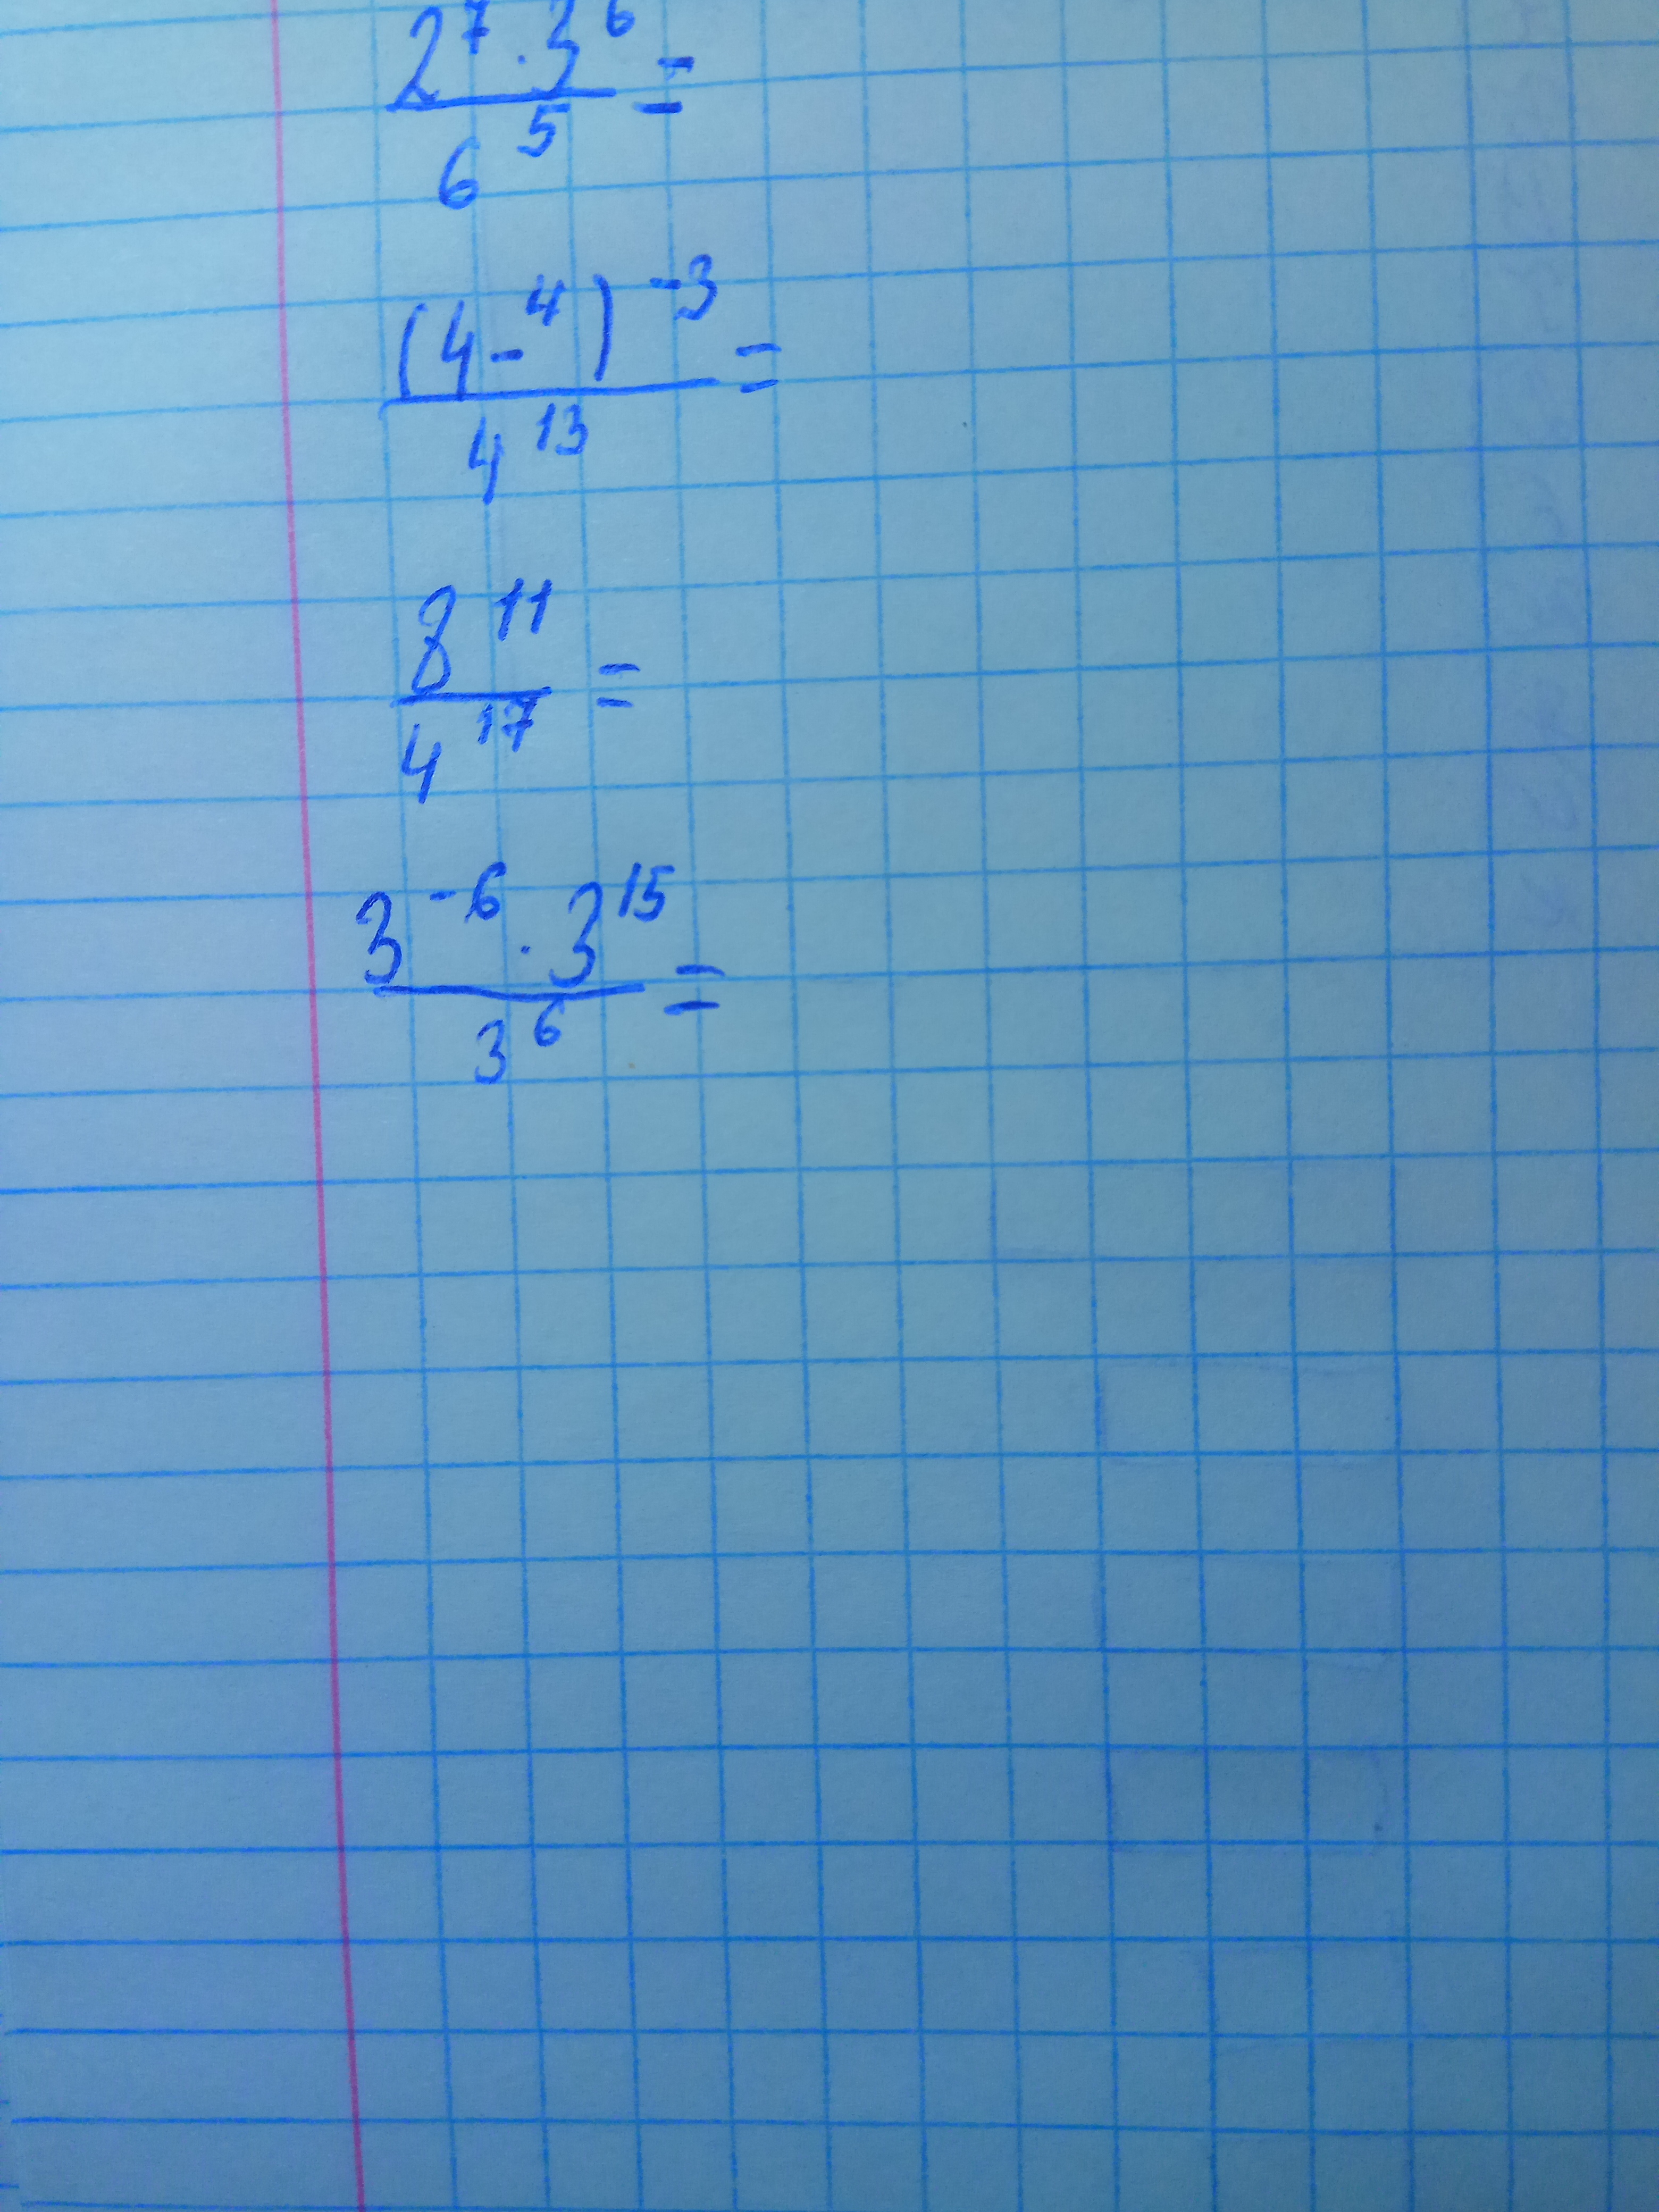 2^7 · 3^6 / 6^5 =
(4^-4)^-3 / 4^13 =
8^11 / 4^17 =
3^-6 · 3^15 / 3^6 =